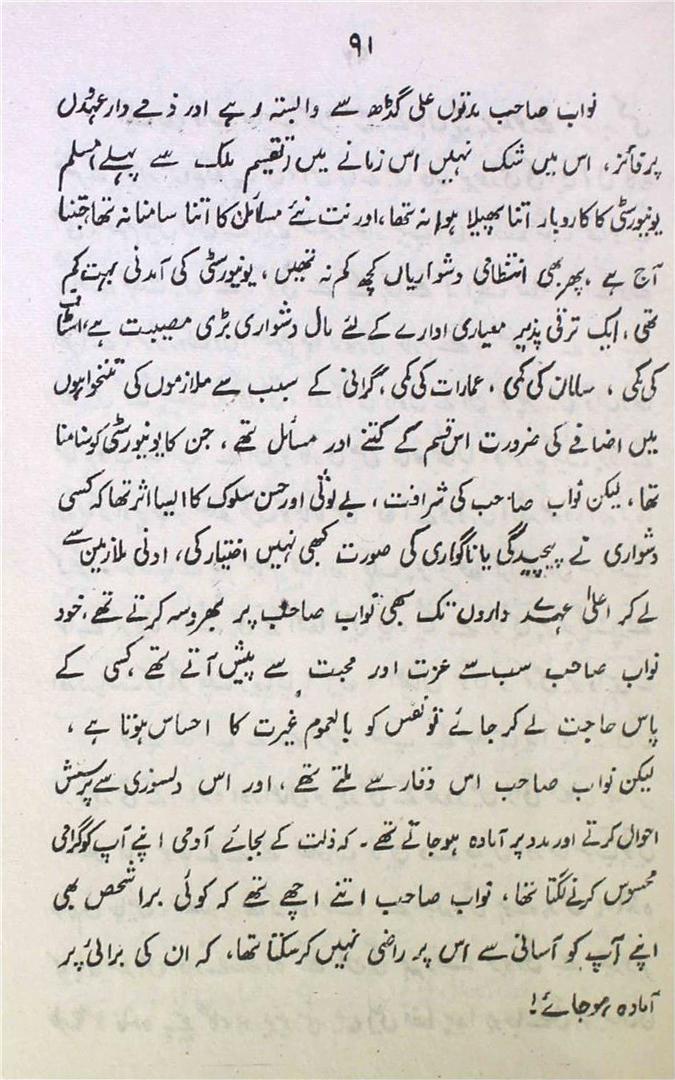 ۹۱
نواب صاحب مدتوں علی گڈھ سے وابستہ رہے اور ذمے دار عہدوں
پر فائز، اس میں شک نہیں اس زمانے میں (تقسیم ملک سے پہلے) مسلم
یونیورسٹی کا کاروبار اتنا پھیلا ہوا نہ تھا، اور نت نئے مسائل کا اتنا سامنا نہ تھا، جتنا
آج ہے، پھر بھی انتظامی دشواریاں کچھ کم نہ تھیں، یونیورسٹی کی آمدنی بہت کم
تھی، ایک ترقی پذیر معیاری ادارے کے لئے مال دشواری بڑی مصیبت ہے، اسٹاف
کی کمی، سامان کی کمی، عمارات کی کمی، گرانی کے سبب سے ملازموں کی تنخواہوں
میں اضافے کی ضرورت اس قسم کے کتنے اور مسائل تھے، جن کا یونیورسٹی کو سامنا
تھا، لیکن نواب صاحب کی شرافت، بے لوثی اور حسن سلوک کا ایسا اثر تھا کہ کسی
دشواری نے پیچیدگی یا ناگواری کی صورت کبھی نہیں اختیار کی، ادنی ملازمین سے
لے کر اعلیٰ عہدہ داروں تک سبھی نواب صاحب پر بھروسہ کرتے تھے، خود
نواب صاحب سب سے عزت اور محبت سے پیش آتے تھے، کسی کے
پاس حاجت لے کر جائے تو نفس کو بالعموم غیرت کا احساس ہوتا ہے،
لیکن نواب صاحب اس وقار سے ملتے تھے، اور اس دلسوزی سے پرسش
احوال کرتے اور مدد پر آمادہ ہو جاتے تھے۔ کہ ذلت کے بجائے آدمی اپنے آپ کو گرامی
محسوس کرنے لگتا تھا، نواب صاحب اتنے اچھے تھے کہ کوئی برا شخص بھی
اپنے آپ کو آسانی سے اس پر راضی نہیں کر سکتا تھا، کہ ان کی برائی پر
آمادہ ہو جائے!